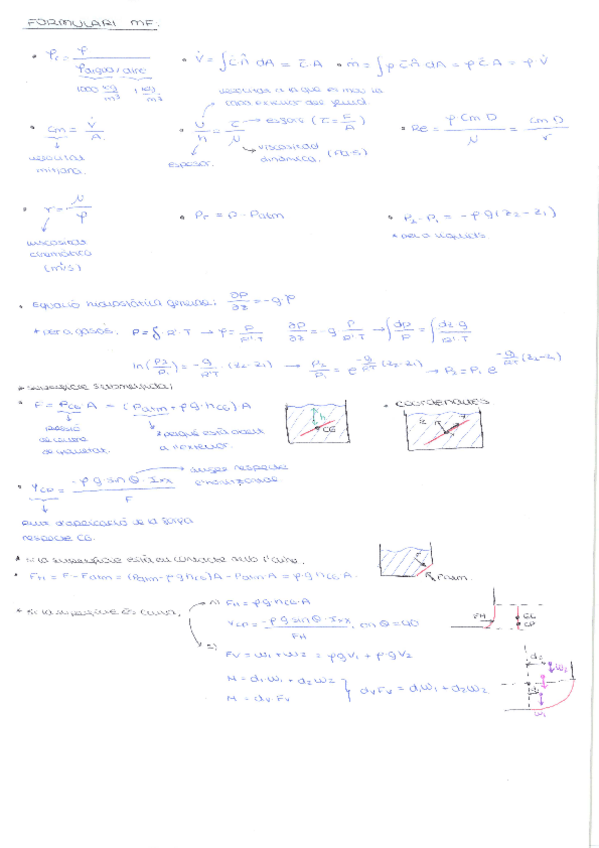 FORMULARI MF.
• ρr = ρ / ρaigua/aire
1000 kg/m³ 1 kg/m³
• V̇ = ∫ c̄ n̂ dA = c̄·A • ṁ = ∫ ρ c̄ n̂ dA = ρ c̄ A = ρ V̇
• cm = V̇ / A
velocitat mitjana.
• U/h = τ/μ → esforç (τ = F/A)
espesor.
viscositat dinàmica. (Pa·s)
• Re = ρ cm D / μ = cm D / ν
• ν = μ / ρ
viscositat cinemàtica (m²/s)
• Pr = P - Patm
• P2 - P1 = -ρ g (z2 - z1)
* per a líquids
• Equació hidrostàtica general: ∂P/∂z = -g·ρ
* per a gasos. P = ρ R'·T → ρ = P/R'·T ∂P/∂z = -g· P/R'·T → ∫ dP/P = ∫ dz·g/R'·T
ln(P2/P1) = -g/R'T · (z2-z1) → P2/P1 = e^(-g/R'T (z2-z1)) → P2 = P1 e^(-g/R'T (z2-z1))
* superfície submergida:
• F = PCG·A = (Patm + ρg hCG) A
pressió de centre de gravetat.
a l'exterior.
h
CG
• coordenades
• YCP = -ρ g sin θ · Ixx / F
angle respecte l'horitzontal.
punt d'aplicació de la força
respecte CG.
* si la superfície està en contacte amb l'aire.
• FH = F - Fatm = (Patm + ρg hCG) A - Patm A = ρg hCG A.
Patm.
* si la superfície és corva,
1) FH = ρg hCG·A
YCP = -ρg sin θ · Ixx / FH, on θ = 90
2) FV = W1 + W2 = ρgV1 + ρgV2
M = d1·W1 + d2W2
M = dV·FV
dV FV = d1W1 + d2W2.
FH
CG
CP
d2
W2
W1